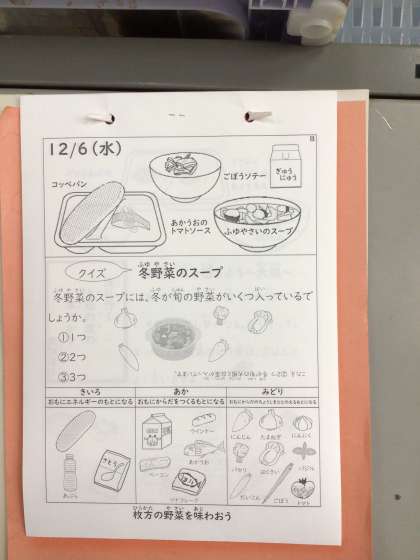 12/6(水)
コッペパン
ごぼうソテー
ぎゅう
にゅう
あかうおの
トマトソース
ふゆやさいのスープ
クイズ
ふゆやさい
冬野菜のスープ
冬野菜のスープには、冬が旬の野菜がいくつ入っているで
しょうか。
①1つ
②2つ
③3つ
きいろ
あか
みどり
おもにエネルギーのもとになる
おもにからだをつくるもとになる
おもにからだのちょうしをととのえるもとになる
ウインナー
あかうお
ベーコン
ツナフレーク
さとう
あぶら
にんじん
たまねぎ
にんにく
パセリ
はくさい
バジル
だいこん
ごぼう
トマト
ひらかた やさい あじ
枚方の野菜を味わおう